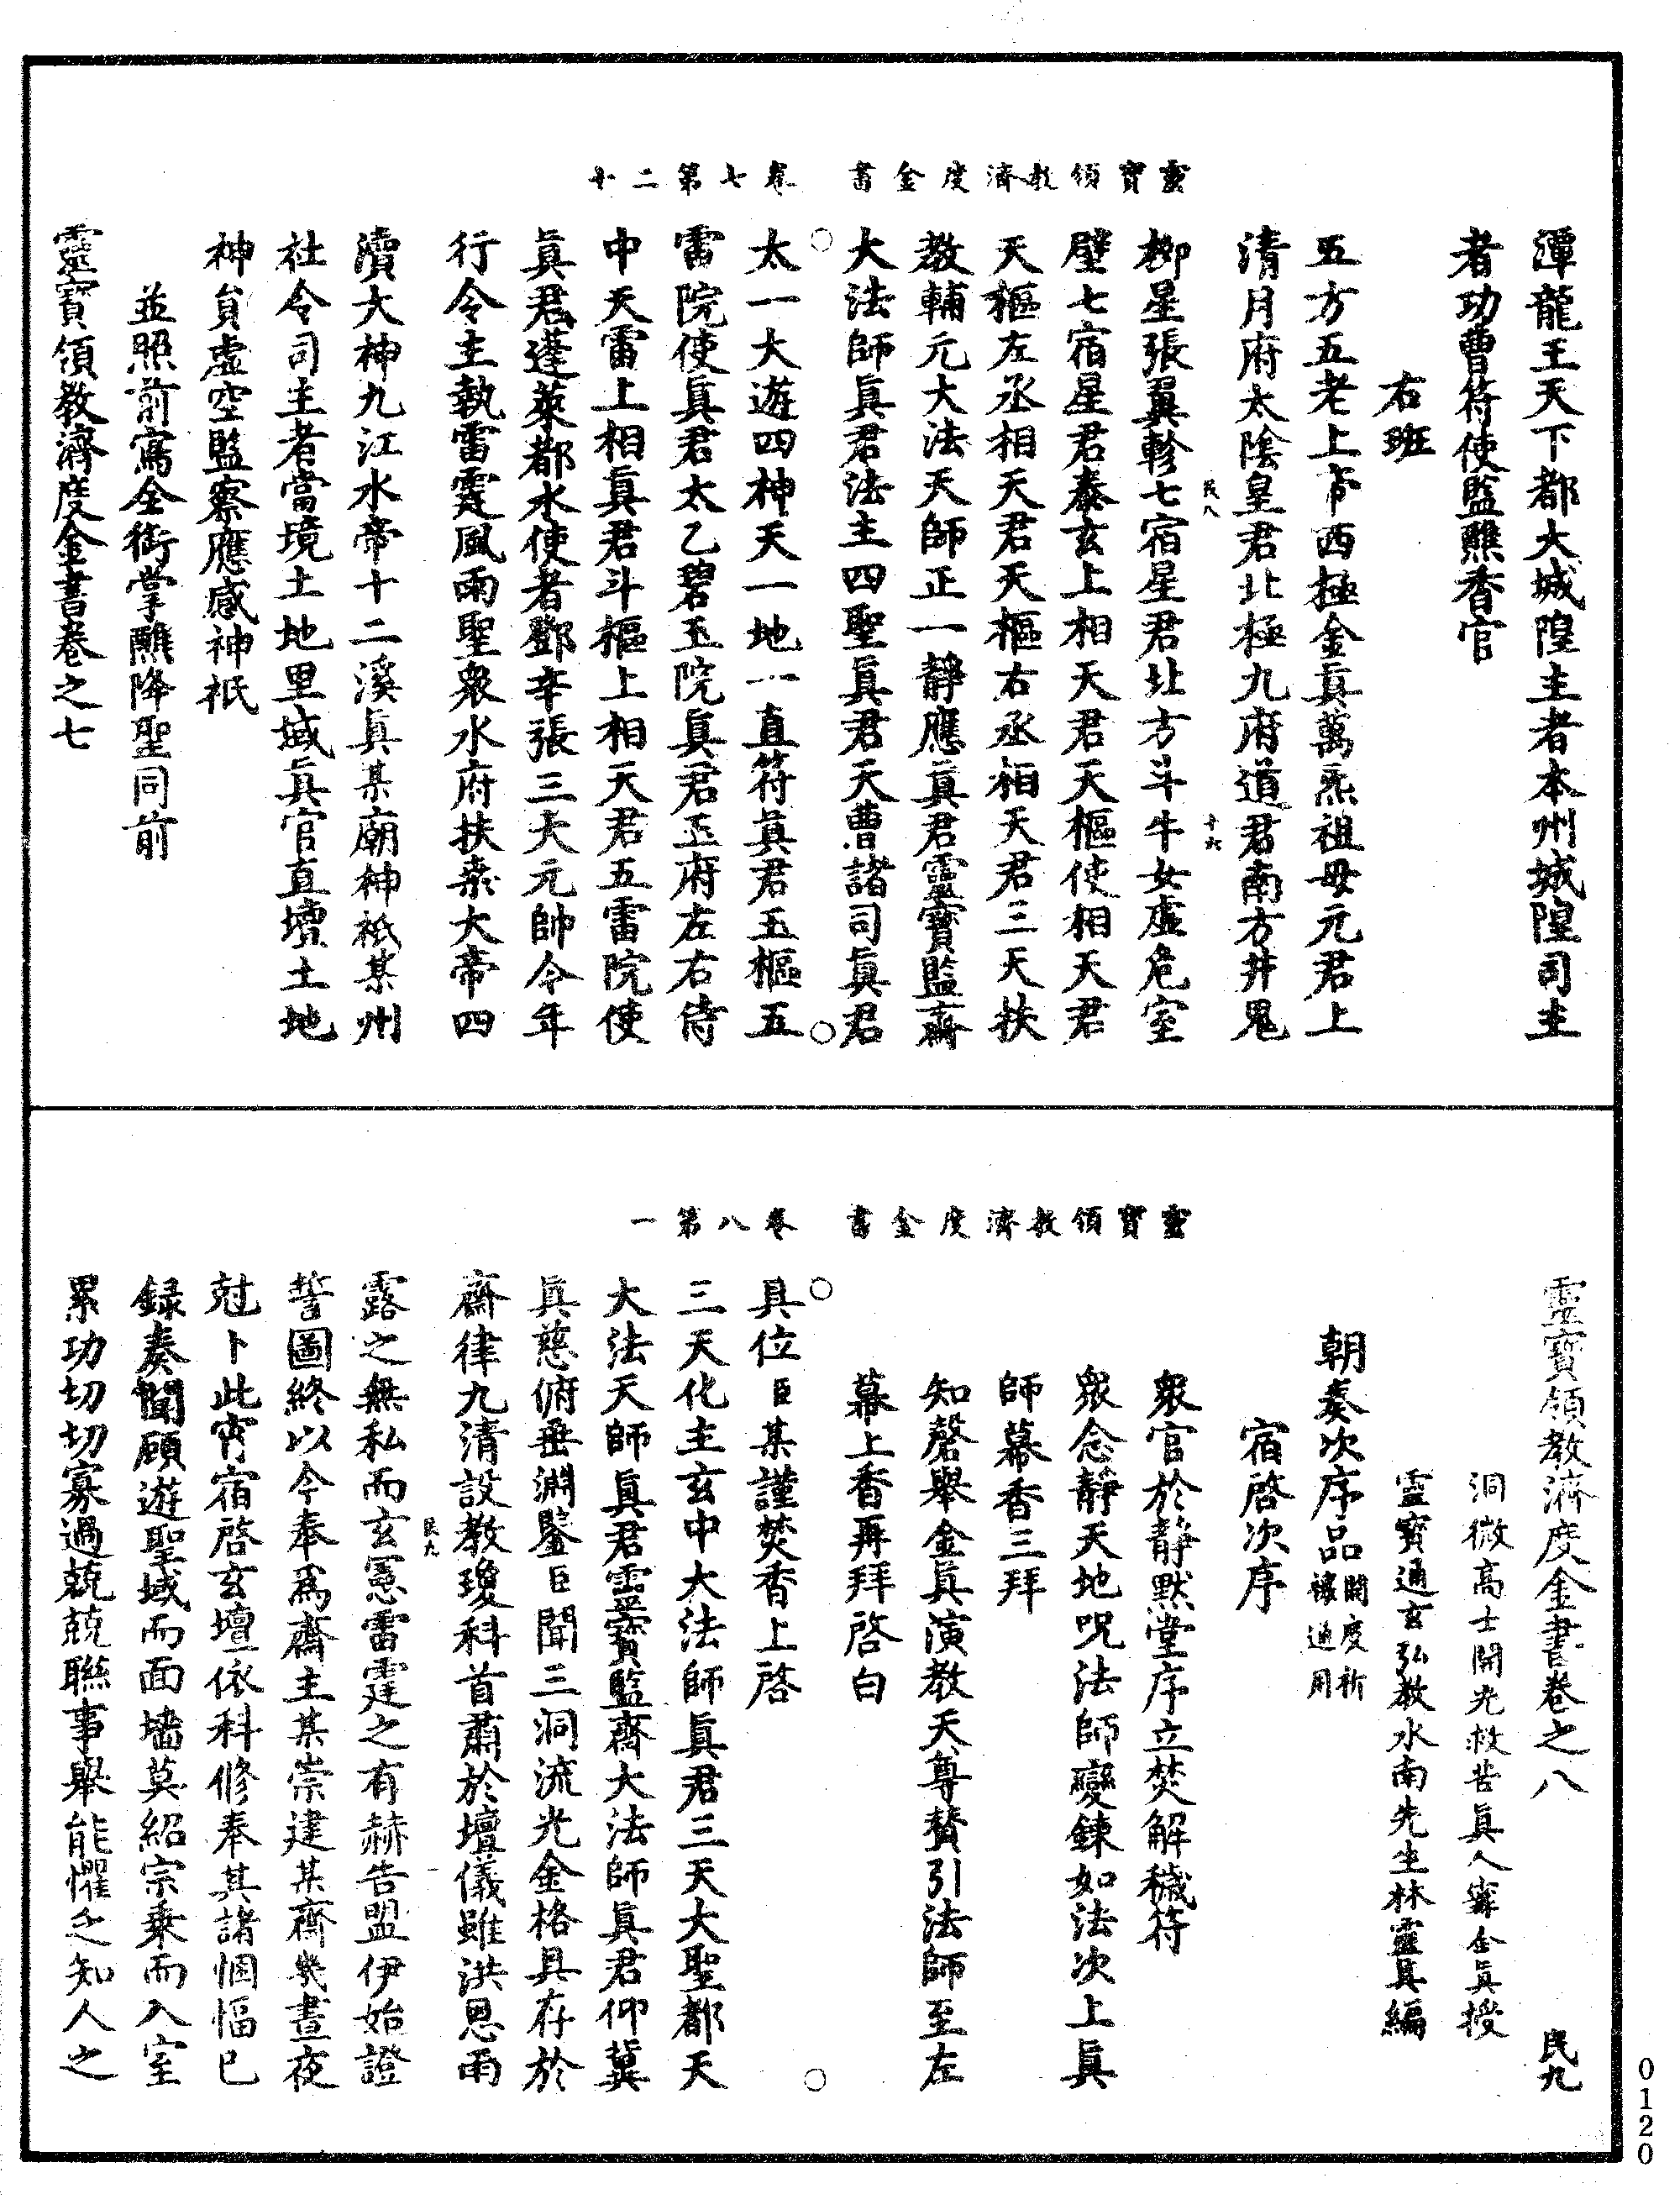 靈寶領教濟度金書　卷七第二十
潭龍王天下都大城隍主者本州城隍司主
者功曹符使監醮香官
右班
五方五老上帝西極金真萬炁祖母元君上
清月府太陰皇君北極九府道君南方井鬼
柳星張翼軫七宿星君北方斗牛女虛危室
壁七宿星君泰玄上相天君天樞使相天君
天樞左丞相天君天樞右丞相天君三天扶
教輔元大法天師正一靜應真君靈寶監齋
大法師真君法主四聖真君天曹諸司真君
太一大遊四神天一地一直符真君玉樞五
雷院使真君太乙碧玉院真君玉府左右侍
中天雷上相真君斗樞上相天君五雷院使
真君蓬萊都水使者鄧辛張三大元帥今年
行令主執雷霆風雨聖眾水府扶桑大帝四
瀆大神九江水帝十二溪真某廟神祇某州
社令司主者當境土地里域真官直壇土地
神貟虛空監察應感神祇
並照前寫全銜掌醮降聖同前
靈寶領教濟度金書卷之七
民八
十六
靈寶領教濟度金書　卷八第一
靈寶領教濟度金書卷之八　民九
洞微高士開光救苦真人甯全真授
靈寶通玄弘教水南先生林靈真編
朝奏次序品開度祈禳通用
宿啓次序
眾官於靜默堂序立焚解穢符
眾念靜天地呪法師變鍊如法次上真
師幕香三拜
知磬舉金真演教天尊贊引法師至左
幕上香再拜啓白
具位臣某謹焚香上啓
三天化主玄中大法師真君三天大聖都天
大法天師真君靈寶監齋大法師真君仰冀
真慈俯垂淵鑒臣聞三洞流光金格具存於
齋律九清設教瓊科首肅於壇儀雖洪恩雨
露之無私而玄憲雷霆之有赫告盟伊始證
誓圖終以今奉為齋主某崇建某齋幾晝夜
尅卜此宵宿啓玄壇依科修奉其諸悃愊已
録奏聞顧遊聖域而面墻莫紹宗乗而入室
累功切切寡過兢兢聮事舉能懼乏知人之
民九
0120